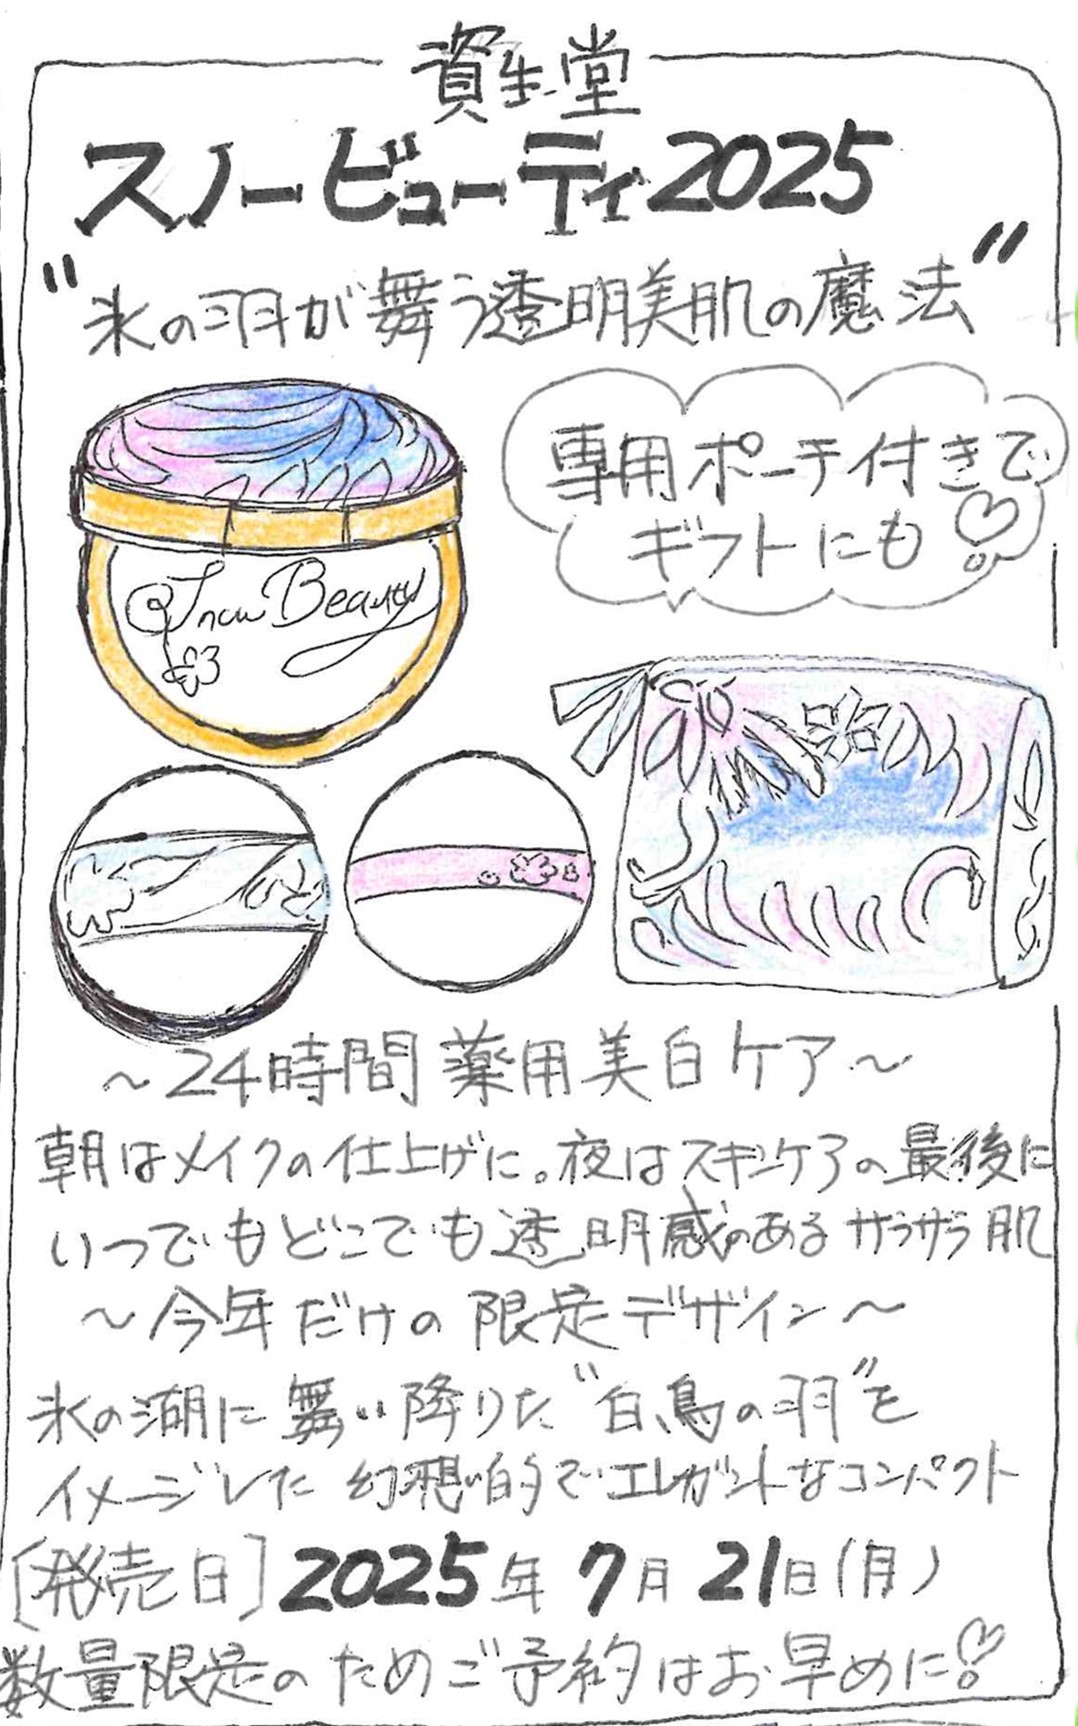 資生堂
スノービューティ2025
"氷の羽が舞う透明美肌の魔法"
専用ポーチ付きで
ギフトにも♡
Snow Beauty
～24時間薬用美白ケア～
朝はメイクの仕上げに。夜はスキンケアの最後に
いつでもどこでも透明感のあるサラサラ肌
～今年だけの限定デザイン～
氷の湖に舞い降りた"白鳥の羽"を
イメージした幻想的でエレガントなコンパクト
[発売日]2025年7月21日(月)
数量限定のためご予約はお早めに♡